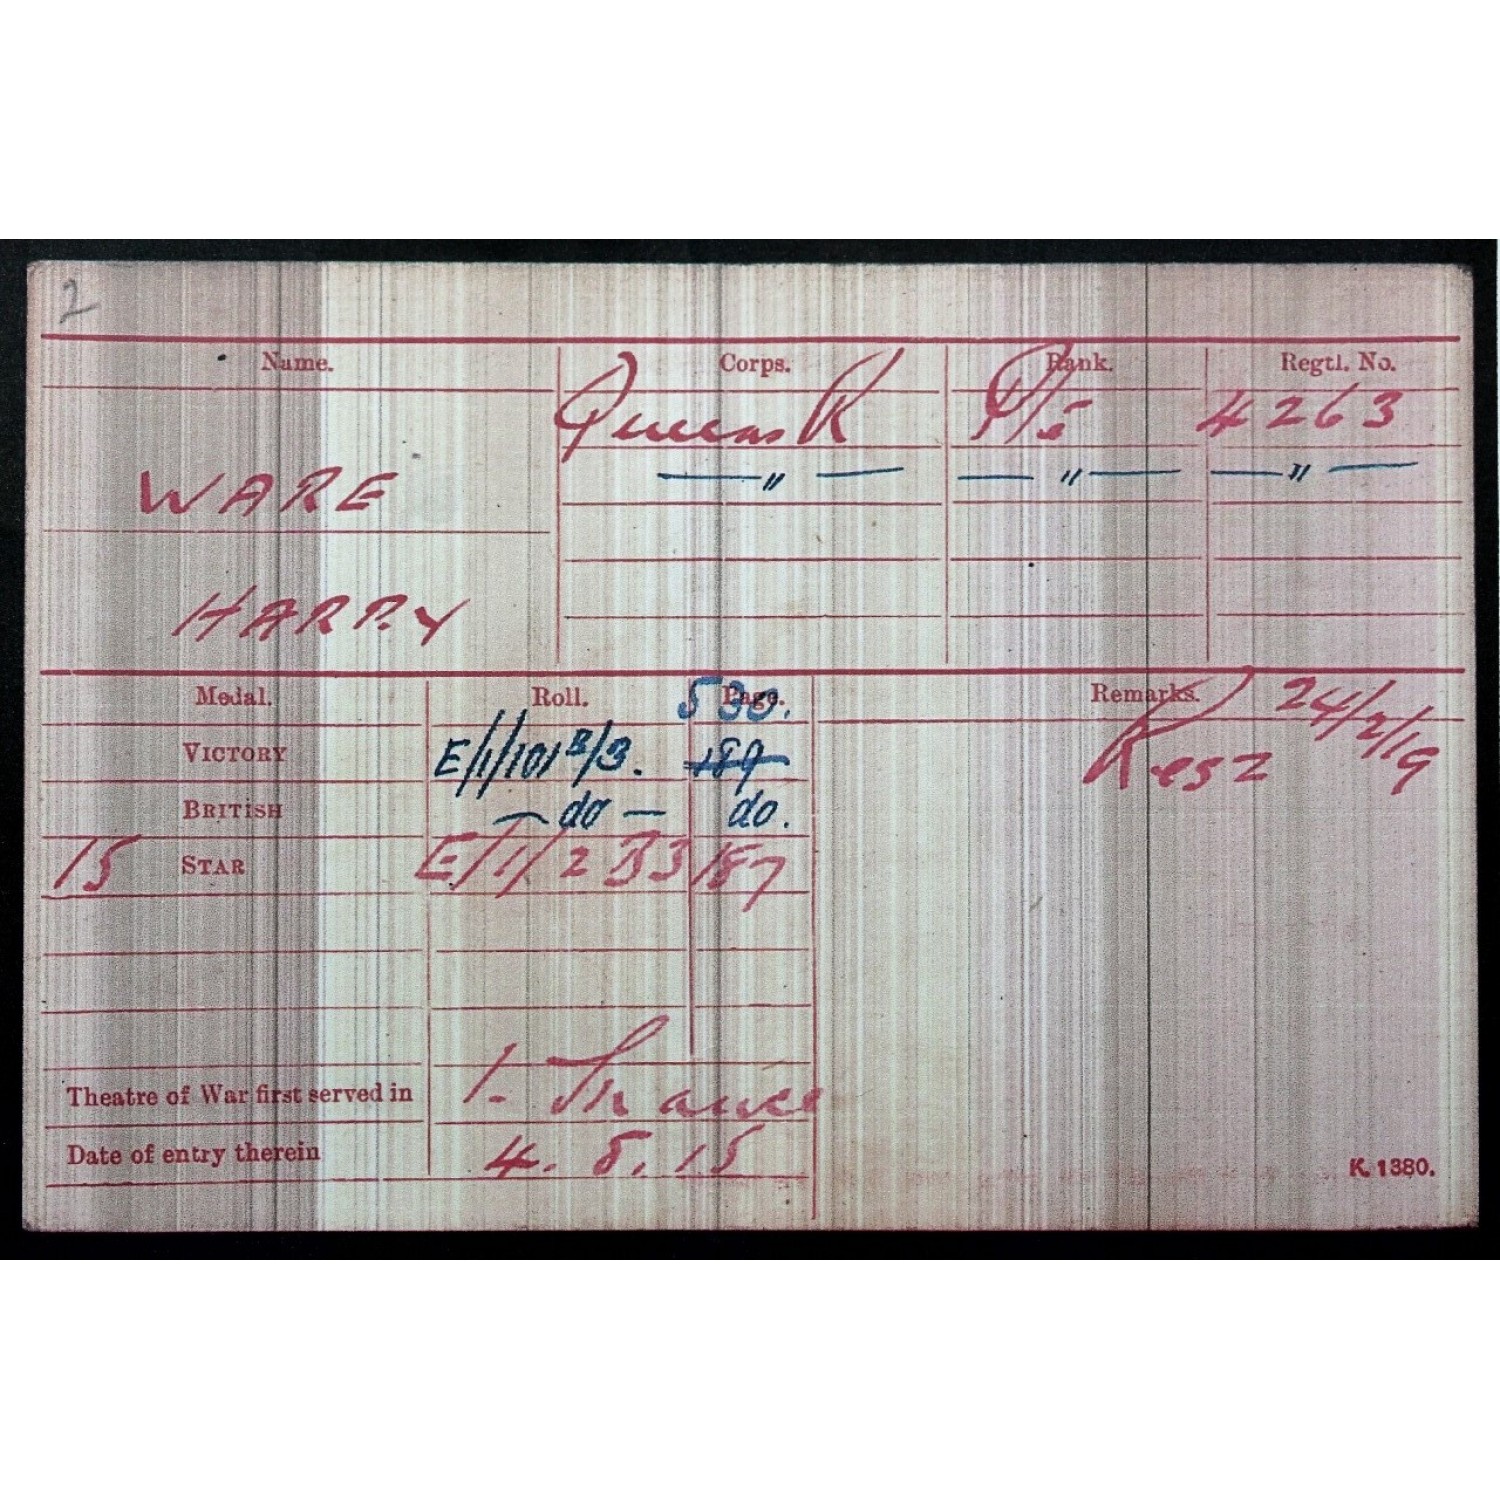 2
Name. Corps. Rank. Regtl. No.
Queens R Pte 4263
— " — — " — — " —
WARE
HARRY
Medal. Roll. Page. Remarks.
530. 24/2/19
VICTORY E/1/101 B/3. 189 Resz
BRITISH — do — do.
15 STAR E/1/2 B3 187
Theatre of War first served in 1. France
Date of entry therein 4. 8. 15
K. 1380.